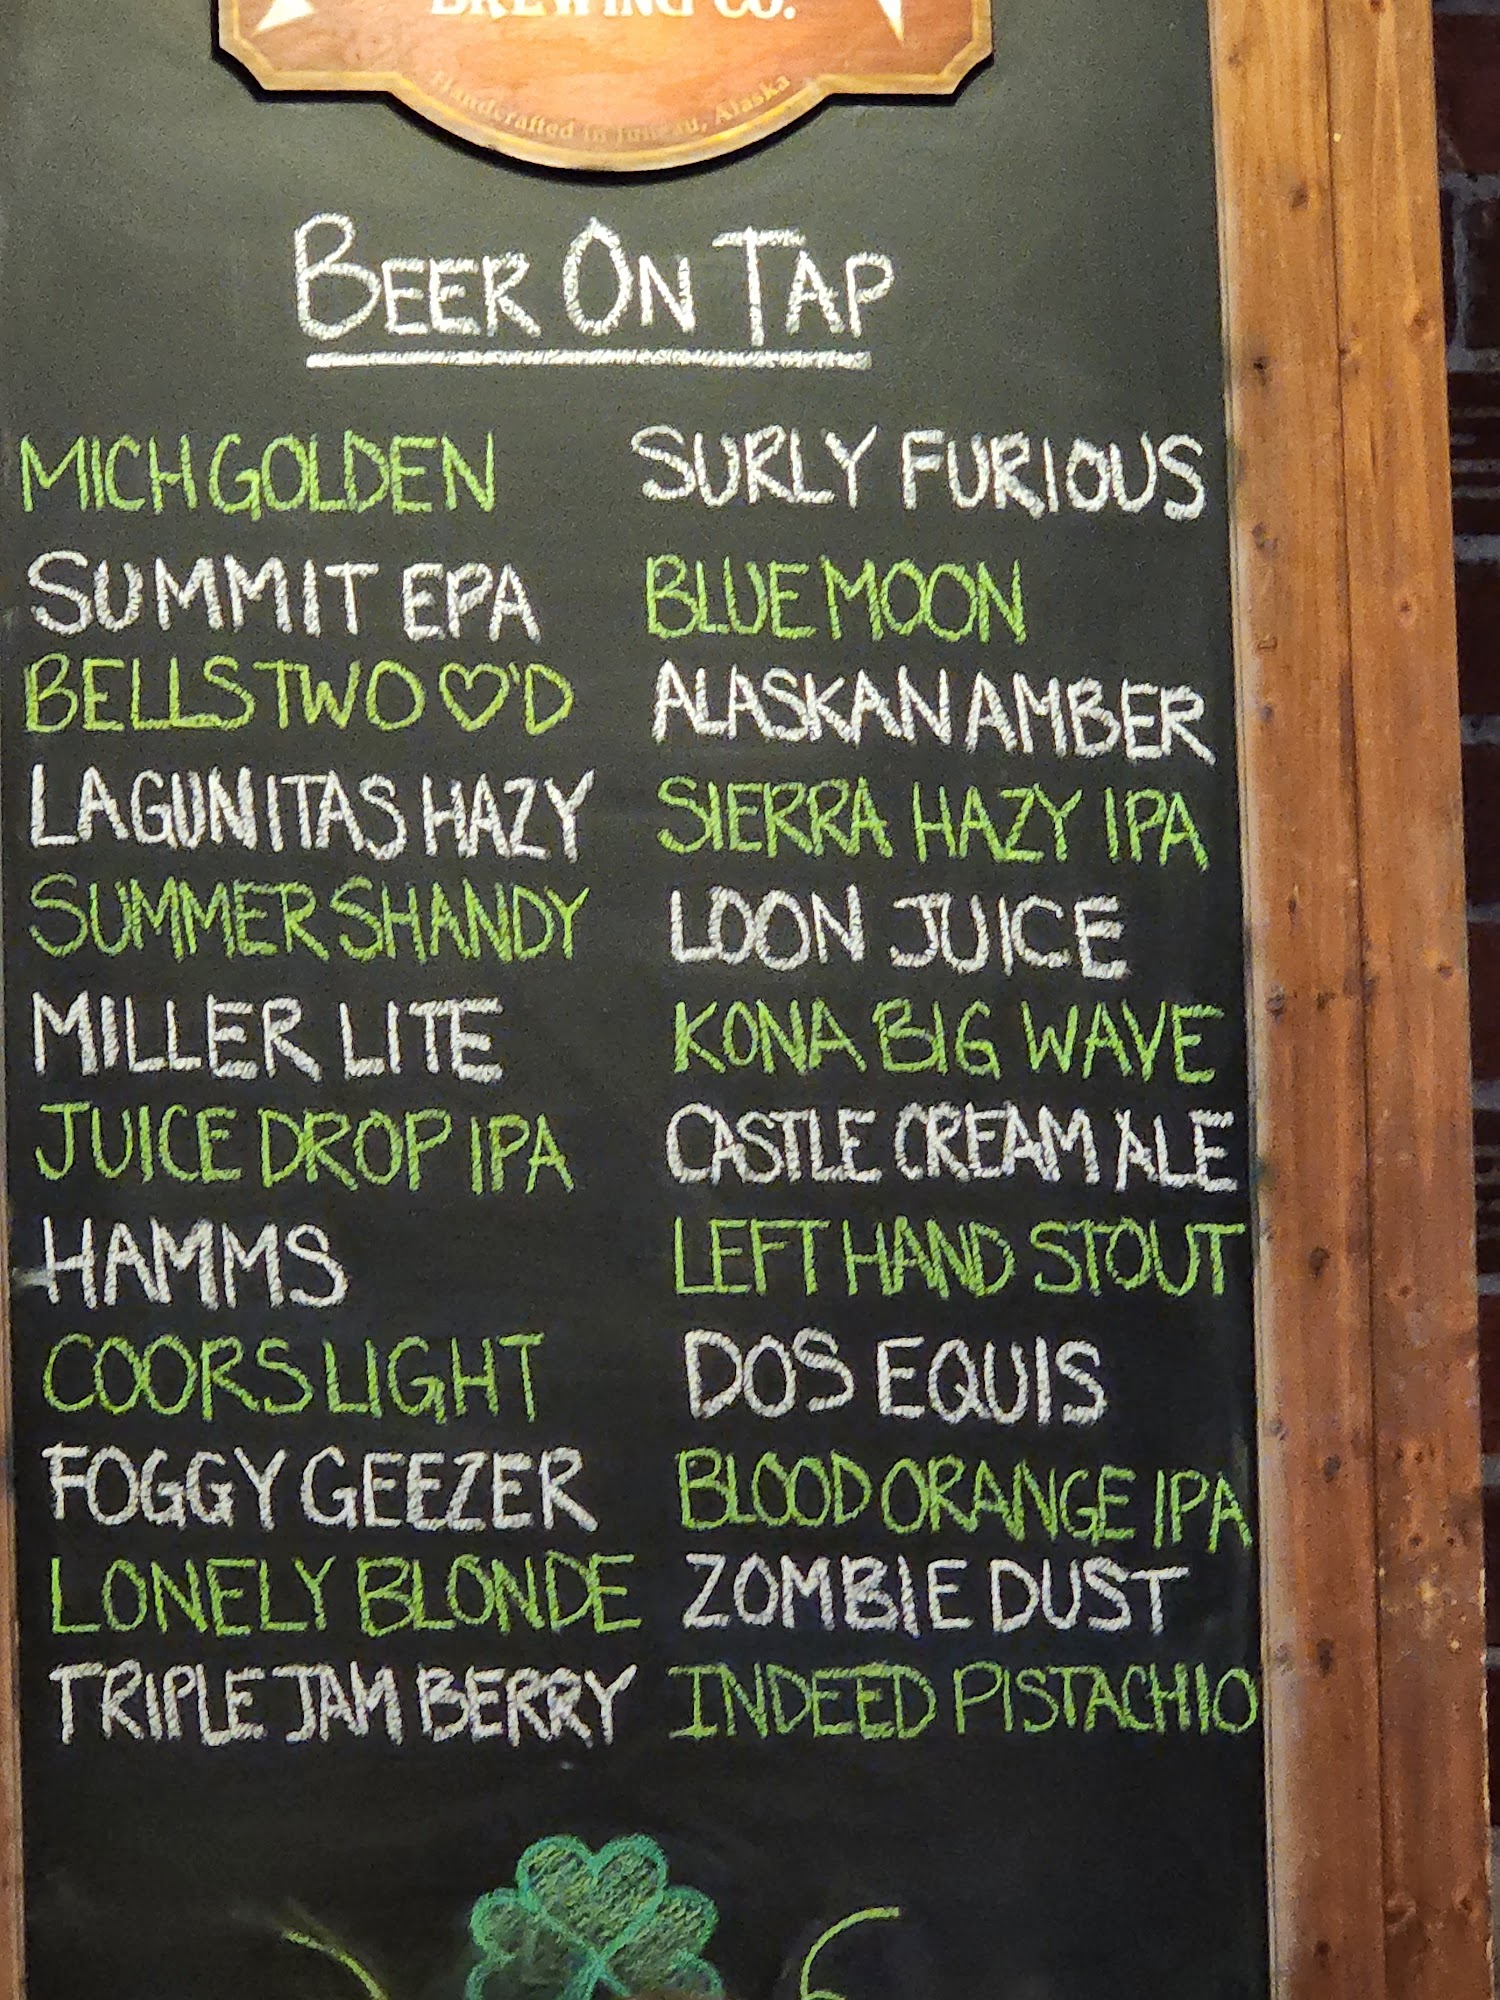 BREWING CO.
Handcrafted in Juneau, Alaska
BEER ON TAP
MICH GOLDEN
SUMMIT EPA
BELLS TWO ♡'D
LAGUNITAS HAZY
SUMMER SHANDY
MILLER LITE
JUICE DROP IPA
HAMMS
COORS LIGHT
FOGGY GEEZER
LONELY BLONDE
TRIPLE JAM BERRY
SURLY FURIOUS
BLUE MOON
ALASKAN AMBER
SIERRA HAZY IPA
LOON JUICE
KONA BIG WAVE
CASTLE CREAM ALE
LEFT HAND STOUT
DOS EQUIS
BLOOD ORANGE IPA
ZOMBIE DUST
INDEED PISTACHIO